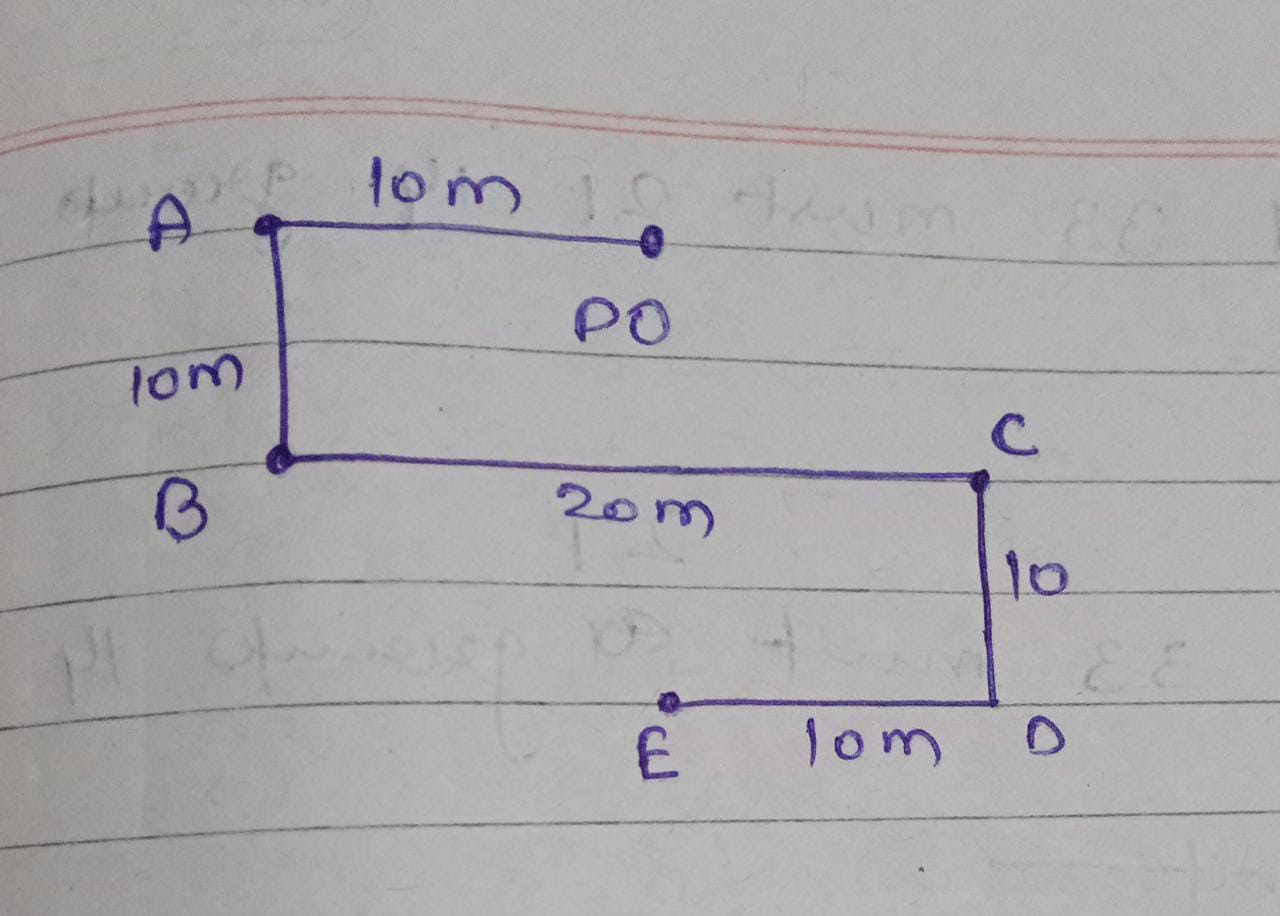 10m
A
PO
10m
C
B
20m
10
E
10m
D